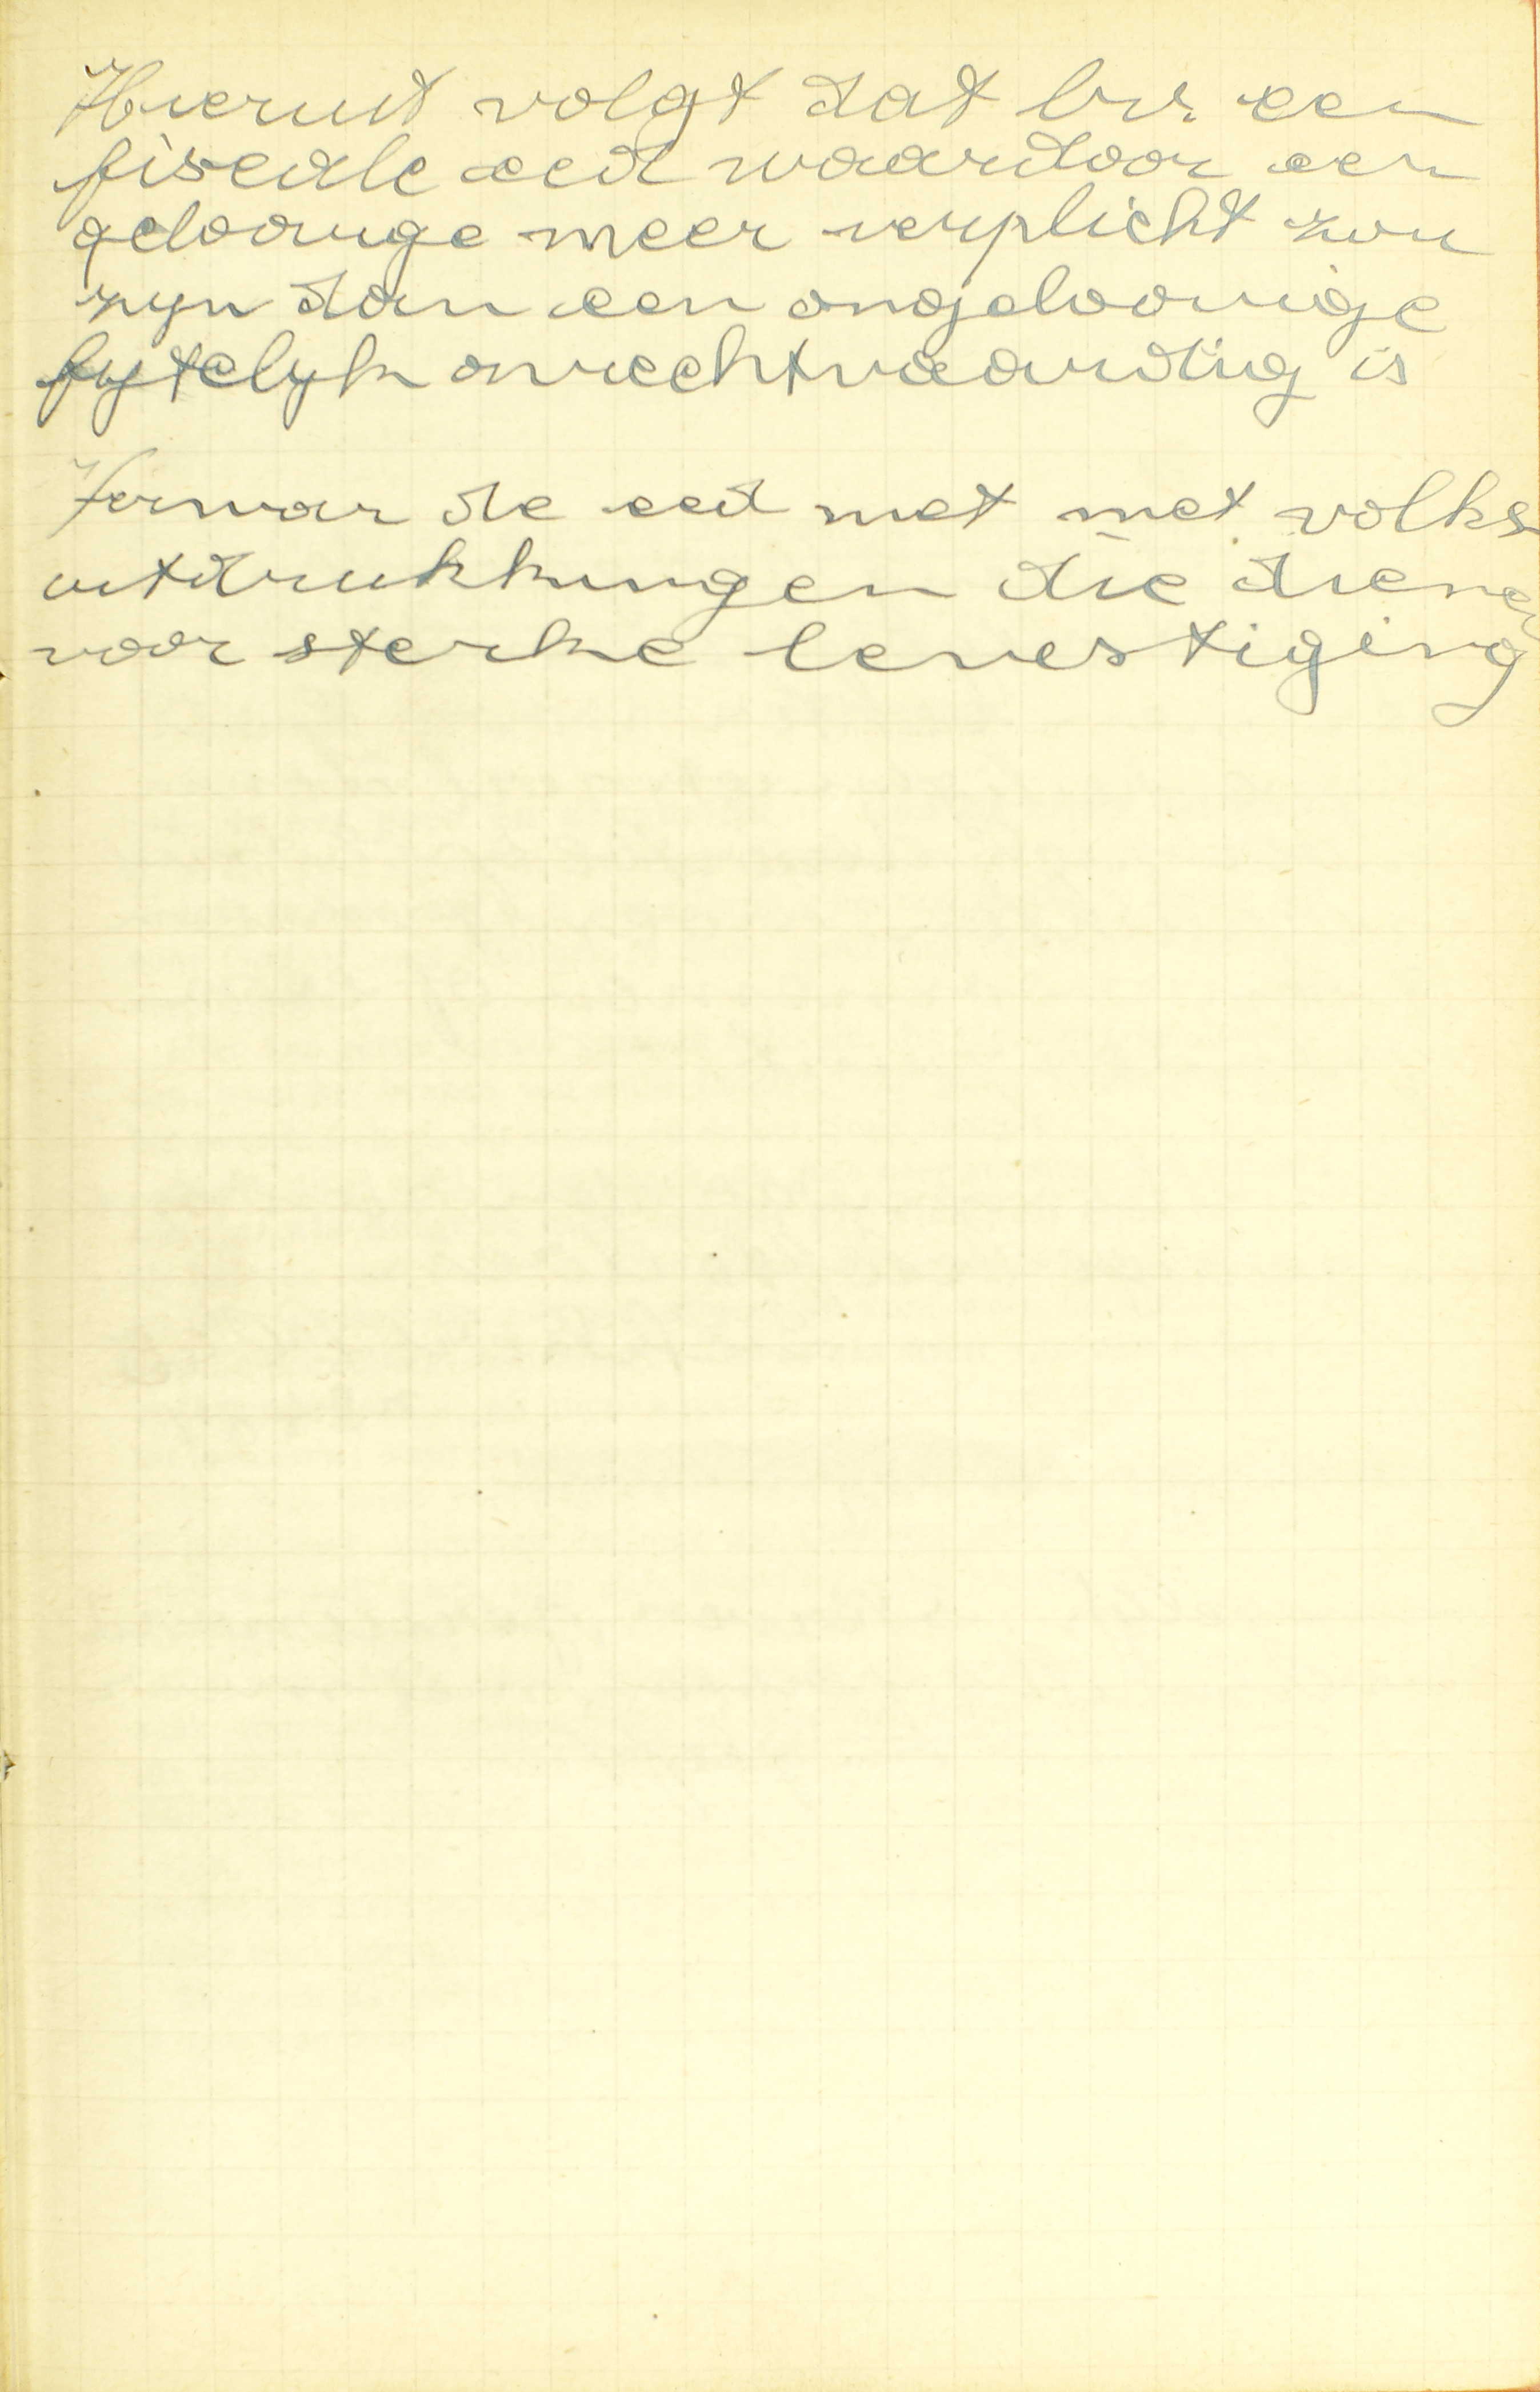 Hieruit volgt dat bv. een
fiscale eed waardoor een
geloovige meer verplicht zou
zyn dan een ongeloovige
fytelyk onrechtvaardig is
Verwar de eed niet met volks
uitdrukkingen die dienen
voor sterke bevestiging